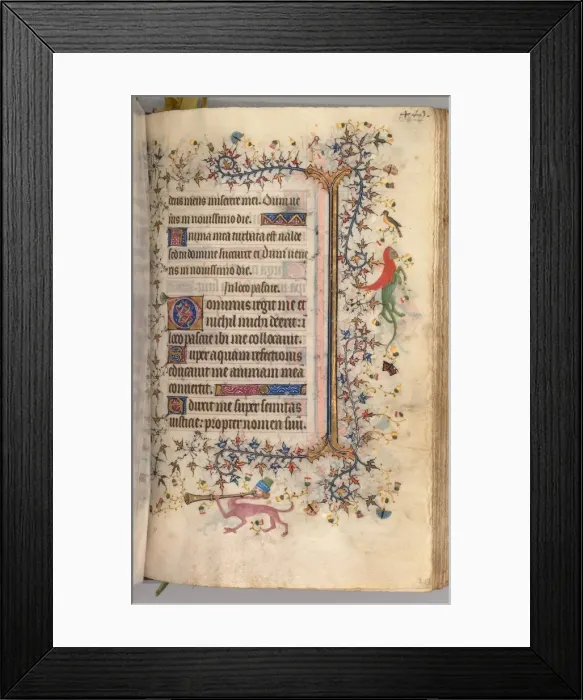 deus meus miserere mei. Dum ve
ris in novissimo die.
Anima mea turbata est valde
sed tu domine succurre ei Dum vene
ris in novissimo die.
In loco pascue.
Dominus regit me et
nichil michi deerit: i
loco pascue ibi me collocavit.
Super aquam refectionis
educavit me animam mea
convertit.
Deduxit me super semitas
iusticie: propter nomen suu.